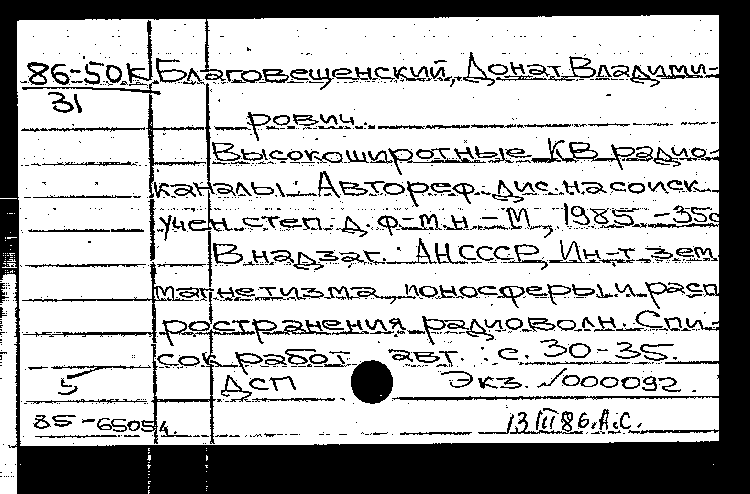 86-50К Благовещенский, Донат Владими-
31
рович.
Высокоширотные КВ радио-
каналы : Автореф. дис. на соиск.
учен. степ. д. ф-м. н. – М, 1985 – 35с
В надзаг. : АН СССР, Ин-т зем.
магнетизма, ионосферы и расп
ространения радиоволн. Спи-
сок работ авт. : с. 30-35.
5 ДСП Экз. №000092.
85-65054. 13 III 86. А.С.